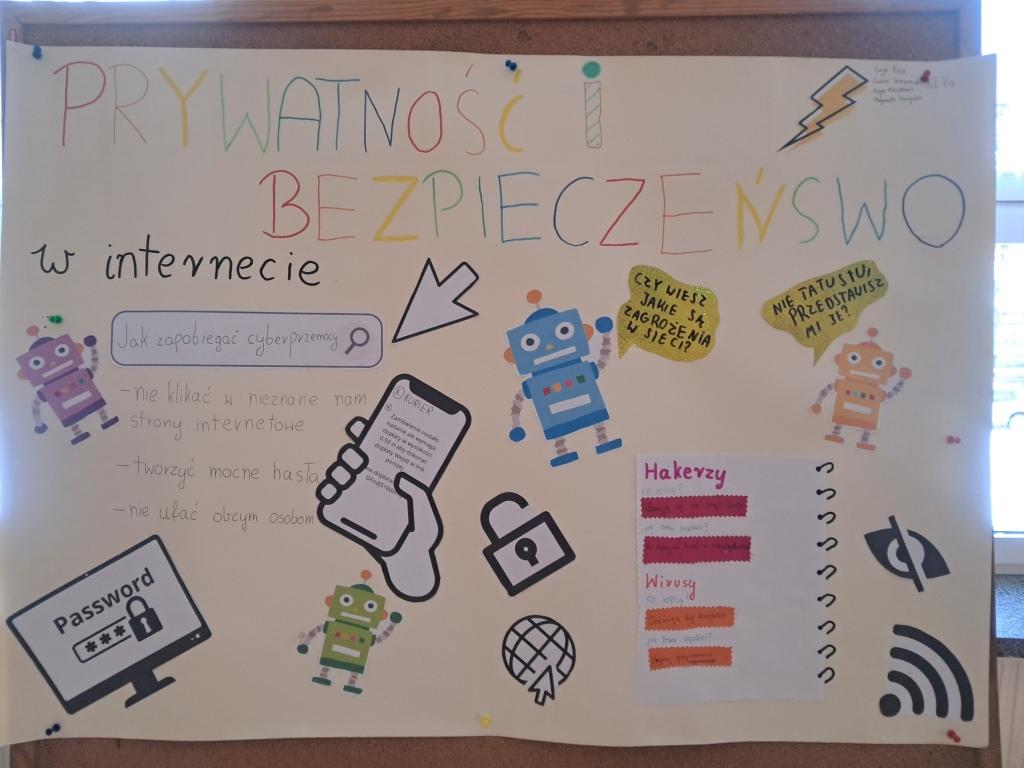 PRYWATNOŚĆ i
BEZPIECZEŃSWO
w internecie
Kl Va
Jak zapobiegać cyberprzemocy
-nie klikać w nieznane nam
strony internetowe
-tworzyć mocne hasła
-nie ufać obcym osobom
KURIER
Zamówienie zostało
nadane ale wymaga
dopłaty w wysokości
0,50 zł aby dokonać
dopłaty Wejdź w link
poniżej
CZY WIESZ
JAKIE SĄ
ZAGROŻENIA
W SIECI?
NIE TATUSIU,
PRZEDSTAWISZ
MI JE?
Hakerzy
co robią?
jak temu zapobiec?
Wirusy
co robią?
jak temu zapobiec?
Password
***